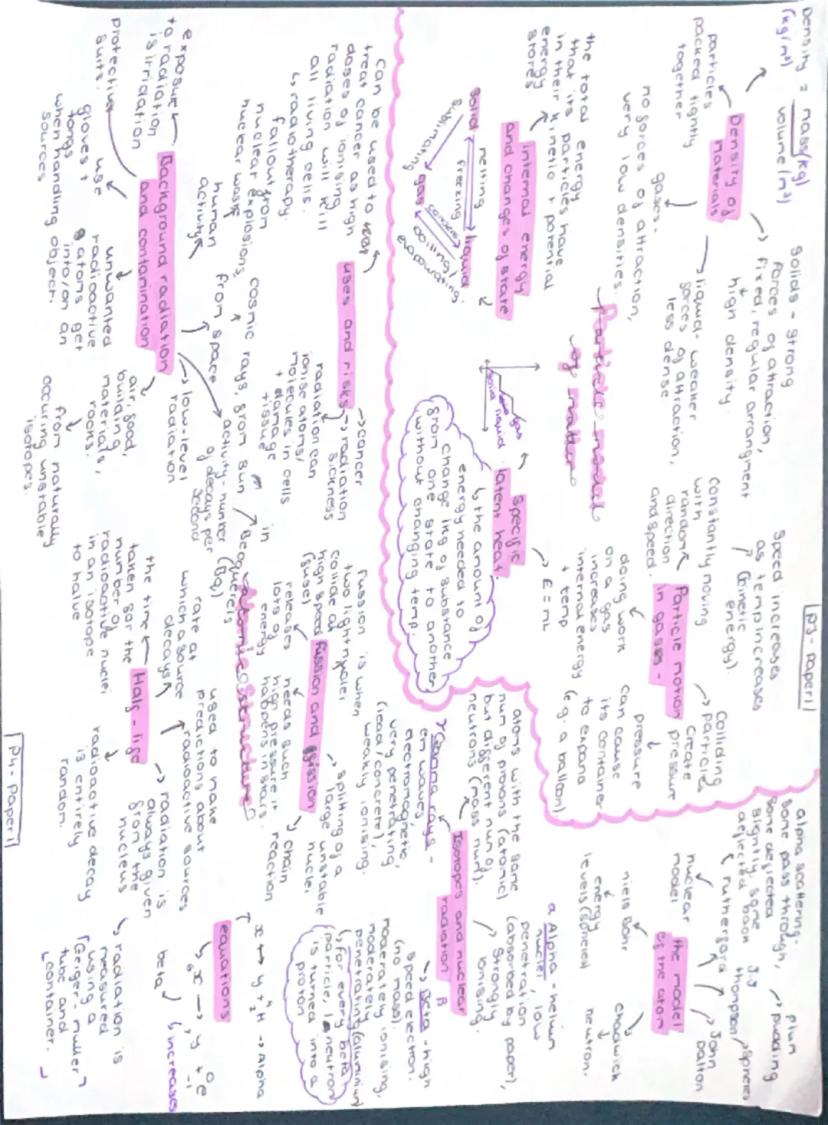 p3 - Paper 1
Particle model
of matter
Density of
materials
Density = mass (kg)
(kg/m³) volume (m³)
particles
packed tightly
together
solids - strong
forces of attraction,
fixed, regular arrangment
high density.
liquid - weaker
forces of attraction,
less dense
gases -
no forces of attraction,
very low densities.
internal energy
and changes of state
the total energy
that its particles have
in their kinetic + potential
energy
stores
solid
melting
freezing
liquid
sublimating
gas
boiling/
evaporating
solid
liquid
gas
specific
latent heat.
↳ the amount of
energy needed to
change 1kg of substance
from one state to another
without changing temp.
E = mL
Particle motion
in gases -
constantly moving
with
random
direction
and speed.
Speed increases
as temp increases
(kinetic
energy).
Colliding
particles
create
pressure
pressure
can cause
its container
to expand
(e.g. a balloon)
doing work
on a gas
increases
internal energy
+ temp
atomic structure
p4 - Paper 1
the model
of the atom
John
Dalton
spheres
J.J
thompson
plum
pudding
rutherford
alpha scattering.
some pass through,
some deflected
slightly, some
deflected back
nuclear
model
niels Bohr
energy
levels
chadwick
neutron.
isotopes and nuclear
radiation
atoms with the same
num of protons (atomic)
but different num of
neutrons (mass num).
α Alpha - helium
nuclei, low
penetration
(absorbed by paper),
strongly
ionising.
β
Beta - high
speed electron.
(no mass).
moderately ionising,
moderately
penetrating (aluminium)
(for every beta
particle, 1 neutron
is turned into a
proton
γ Gamma rays -
em waves,
electromagnetic,
very penetrating
(lead/concrete),
weakly ionising.
equations
x → y + ⁴₂H → Alpha
x → y + ⁰₋₁e
beta
increases
fussion and fission
fussion is when
two light nuclei
collide at
high speed
(fuse)
releases
lots of
energy
needs such
high pressure it
happens in stars.
splitting of a
large unstable
nuclei
chain
reaction
Half-life
the time
taken for the
number of
radioactive nuclei
in an isotope
to halve
rate at
which a source
decays
used to make
predictions about
radioactive sources
radiation is
always given
from the
nucleus
radioactive decay
is entirely
random.
radiation is
measured
using a
Geiger-muller
tube and
container.
activity - number
of decays per
second
in
Becquerels
(Bq)
uses and risks
cancer
radiation
sickness
radiation can
ionise atoms/
molecules in cells
+ damage
tissue
can be used to
treat cancer as high
doses of ionising
radiation will kill
all living cells.
↳ radiotherapy.
Background radiation
and contamination
low-level
radiation
from space
cosmic rays, from sun
human
activity
fallout from
nuclear explosions,
nuclear waste
exposure
to radiation
is irridation
protective
suits.
use
gloves +
tongs
when handling
sources
unwanted
radioactive
atoms get
into/on an
object.
air, food,
building
materials,
rocks.
from naturally
occuring unstable
isotopes.